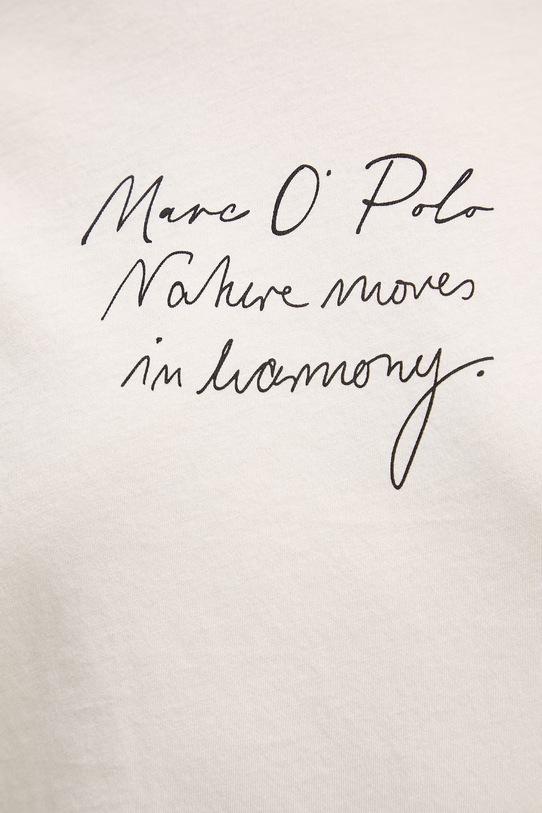 Marc O' Polo
Nature moves
in harmony.